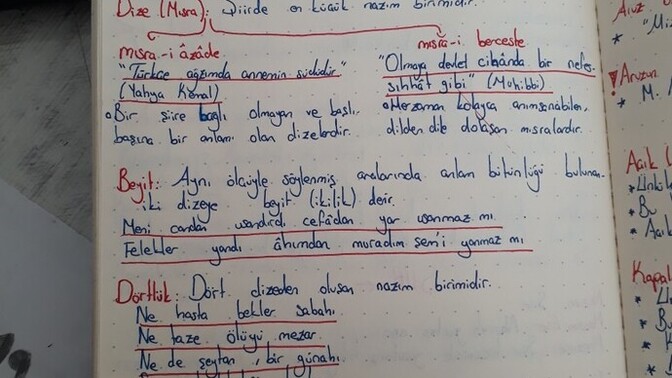 Dize (Mısra): Şiirde en küçük nazım birimidir.
mısra-i âzâde
"Türkçe ağzımda annemin sütüdür"
(Yahya Kemal)
Bir şiire bağlı olmayan ve başlı
başına bir anlamı olan dizelerdir.
mısra-i berceste
"Olmaya devlet cihânda bir nefes
sıhhât gibi" (Muhibbi)
Her zaman kolayca anımsanabilen,
dilden dile dolaşan mısralardır.
Beyit: Aynı ölçüyle söylenmiş aralarında anlam bütünlüğü bulunan
iki dizeye beyit (ikilik) denir.
Meni candan usandırdı cefâdan yar usanmaz mı
Felekler yandı âhımdan muradım şem'i yanmaz mı
Dörtlük: Dört dizeden oluşan nazım birimidir.
Ne hasta bekler sabahı
Ne taze ölüyü mezar
Ne de şeytan, bir günahı
Aruz
"Mi
! Aruzun
* M.
Açık (
* Bu
* Açık
Kapalı